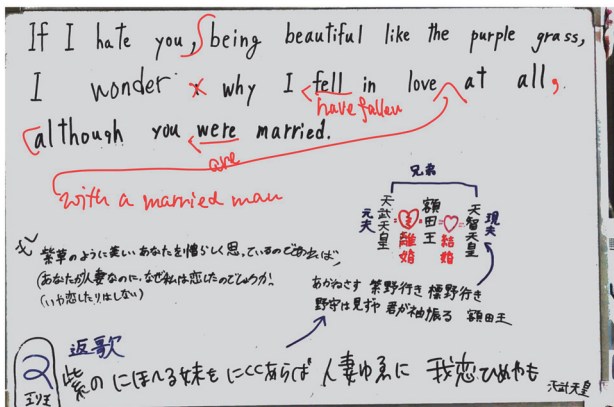 If I hate you, being beautiful like the purple grass,
I wonder why I fell in love at all,
have fallen
although you were married.
are
with a married man
兄弟
元夫
天武天皇
離婚
額田王
結婚
天智天皇
現夫
紫草のように美しいあなたを憎らしく思っているのであれば
(あなたが人妻なのに、なぜ私は恋したのでしょうか!
(いや恋したりはしない)
あかねさす 紫野行き 標野行き
野守は見ずや 君が袖振る 額田王
返歌
紫の にほへる妹を にくくあらば 人妻ゆゑに 我恋ひめやも
天武天皇